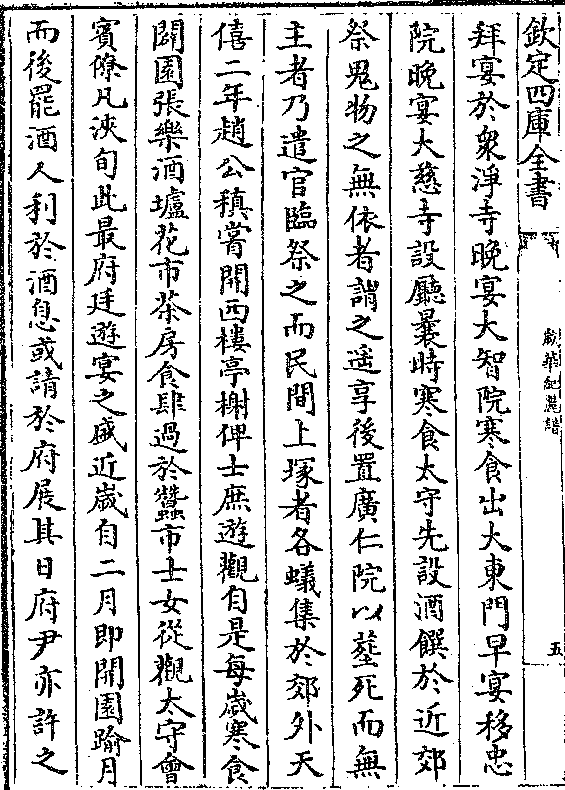 欽定四庫全書
歲華紀麗譜
五
拜宴於衆淨寺晚宴大智院寒食出大東門早宴移忠
院晚宴大慈寺設廳曩時寒食太守先設酒饌於近郊
祭鬼物之無依者謂之遥享後置廣仁院以葬死而無
主者乃遣官臨祭之而民間上塚者各蟻集於郊外天
僖二年趙公稹嘗開西樓亭榭俾士庶遊觀自是每歲寒食
闢園張樂酒壚花市茶房食肆過於蠶市士女從觀太守會
賓僚凡浹旬此最府廷遊宴之盛近歲自二月即開園踰月
而後罷酒人利於酒息或請於府展其日府尹亦許之